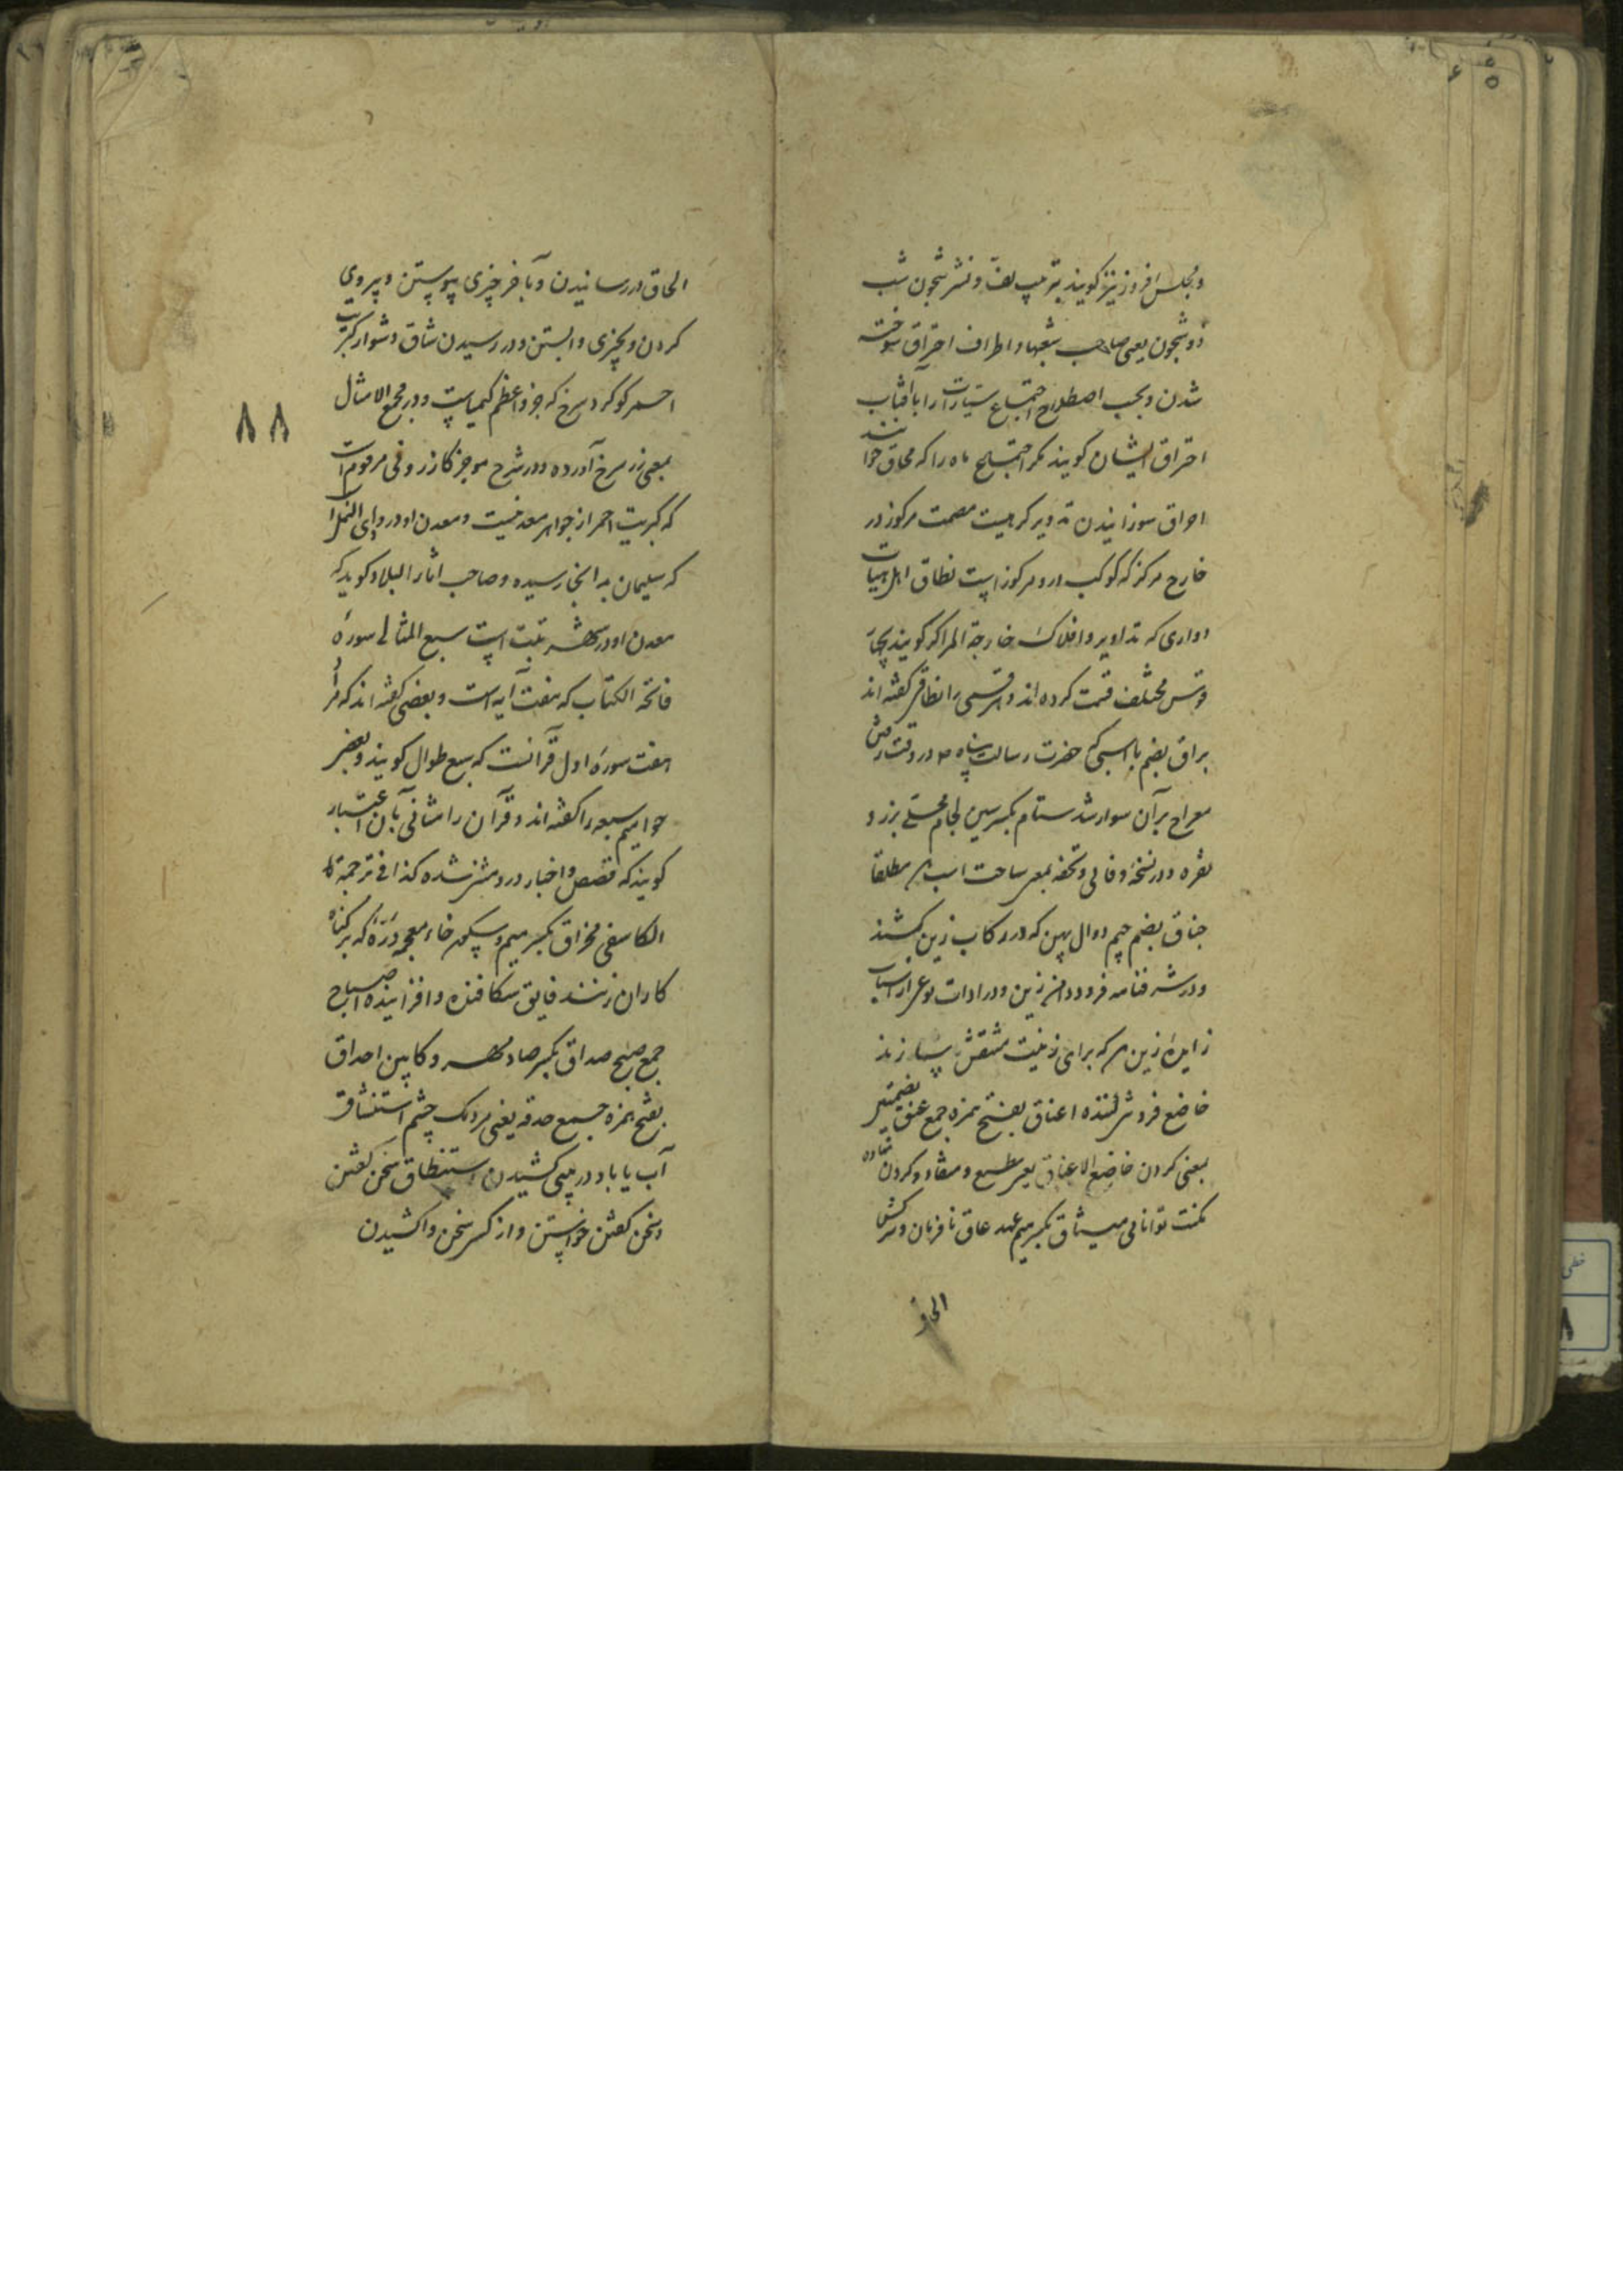 ومجلس افروز نیز کویند بترتیب لف و نشر شجون شب
ذو شجون یعنی صاحب شعبها و اطراف احتراق سوخته
شدن و بحسب اصطلاح اجتماع سیارات را باآفتاب
احتراق ایشان کویند مکر اجتماع ماه را که محاق خوانند
احراق سوزانیدن تدویر کره ایست مصمت مرکوز در
خارج مرکز که کوکب در و مرکوز است نطاق اهل هیات
ادواری که تداویر و افلاک خارجة المراکز کویند بچهار
قوس مختلف قسمت کرده اند و هر قسمی را نطاقی کفته اند
براق بضم با اسبی که حضرت رسالت پناه ص در وقت رفتن
معراج برآن سوار شد ستام بکسر سین لجام محلی بزر و
نقره و در نسخه وفائی و تحفه بمعنی ساخت اسب مطلقا
جناق بضم جیم دوال پهن که در رکاب زین کشند
و در شرفنامه فرود دامن زین و در ادات نوعی از اسباب
زین که برای زینت منقش سازند
خاضع فروشکننده اعناق بفتح همزه جمع عنق بضمتین
بمعنی کردن خاضع الاعناق یعنی مطیع و منقاد و کردن نهاده
مکنت توانائی میثاق بکسر میم عهد عاق نافرمان و سرکش
الحاق
۸۸
الحاق در رسانیدن و بآخر چیزی پیوستن و پیروی
کردن و بچیزی وابستن و در رسیدن شاق دشوار کبریت
احمر کوکرد سرخ که جزو اعظم کیمیاست و در مجمع الامثال
بمعنی زر سرخ آورده و در شرح موجز کازرونی مرقوم است
که کبریت احمر از جواهر معدنیست و معدن او در وادی النمل
که سلیمان بدانجا رسیده و صاحب آثار البلاد کوید که
معدن او در شهر تبت است سبع المثانی سوره
فاتحة الکتاب که هفت آیه است و بعضی کفته اند که مراد
هفت سوره اول قرآنست که سبع طوال کویند و بعضی
حوامیم سبعه را کفته اند و قرآن را مثانی بآن اعتبار
کویند که قصص و اخبار درو مثنی شده کذا فی ترجمة
الکاشفی مخراق بکسر میم و سکون خاء معجمه درّه که بر کناه
کاران زنند فایق شکافنده و افزاینده اصباح
جمع صبح صداق بکسر صاد مهر و کابین احداق
بفتح همزه جمع حدقه یعنی مردمک چشم استنشاق
آب یا باد در بینی کشیدن استنطاق سخن کفتن
و سخن کفتن خواستن و از کسی سخن واکشیدن